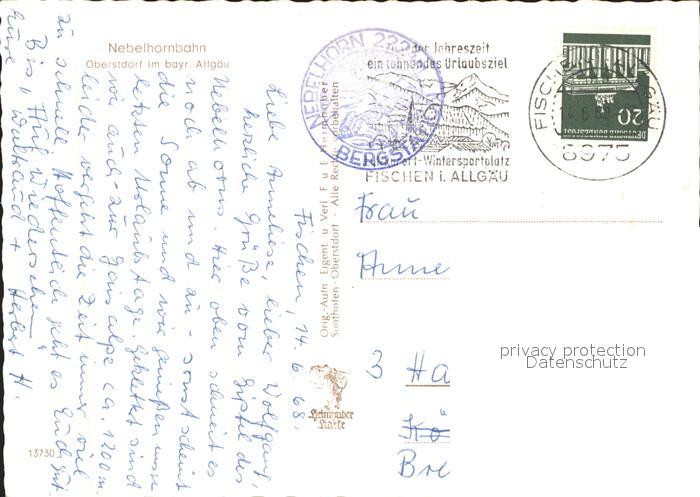 Nebelhornbahn
Oberstdorf im bayr. Allgäu
NEBELHORN 2224
BERGSTATION
Zu jeder Jahreszeit
ein lohnendes Urlaubsziel
Wintersportplatz
FISCHEN i. ALLGÄU
FISCHEN ALLGÄU
8975
20
DEUTSCHE BUNDESPOST
Fischen, 14.6.68.
Liebe Anneliese, lieber Wolfgang,
herzliche Grüße vom Gipfel des
Nebelhorns. Hier oben schneit es
noch ab und zu - sonst scheint
die Sonne und wir genießen unsere
letzten Urlaubstage. Geklettert sind
wir auch - zur Gaisalpe ca. 1200 m.
leider vergeht die Zeit immer viel
zu schnell. Hoffentlich geht es Euch gut.
Bis "Auf Wiedersehen"
Eure Waltraud + Herbert H.
Orig.-Aufn Eigent u Verl F u E Heimhuber
Sonthofen-Oberstdorf - Alle Rechte vorbehalten
Heimhuber
Karte
13730
Frau
Anne
3 Ha
Kö
Bre
privacy protection
Datenschutz